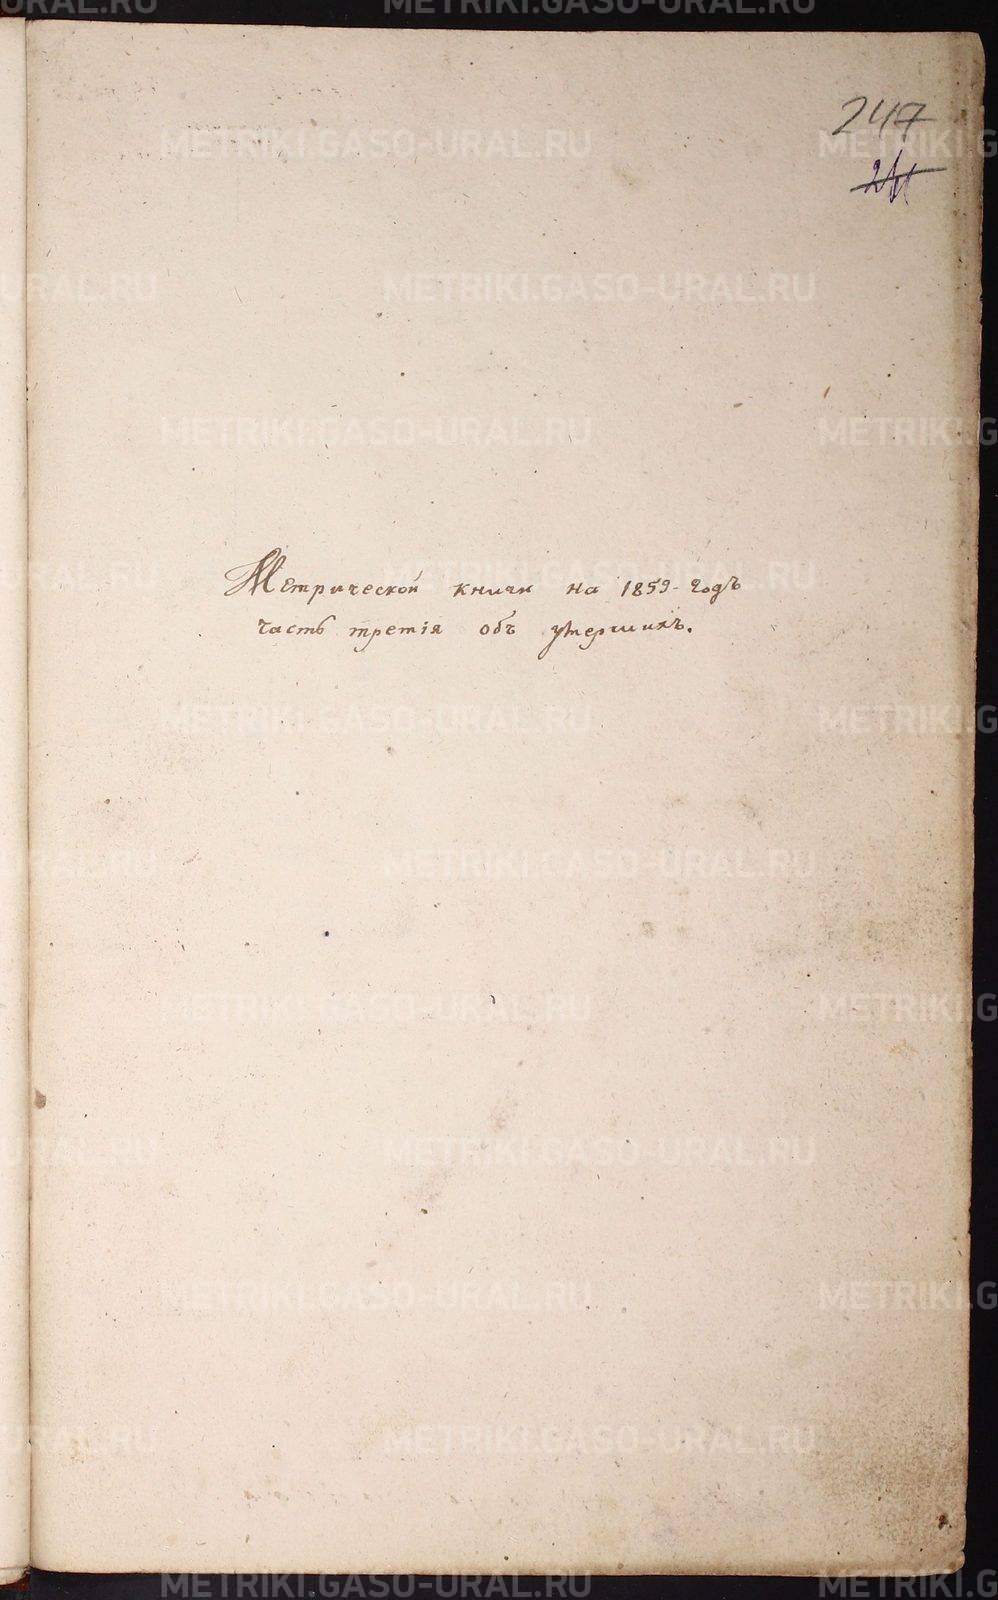 247
Метрической книги на 1859-годъ
часть третія объ умершихъ.
METRIKI.GASO-URAL.RU